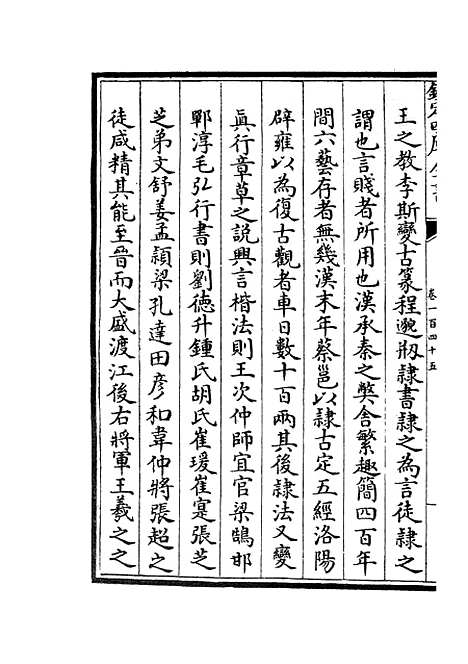 欽定四庫全書
卷一百四十五
王之教李斯變古篆程邈剏隸書隸之為言徒隸之
謂也言賤者所用也漢承秦之獘舍繁趣簡四百年
間六藝存者無幾漢末年蔡邕以隸古定五經洛陽
辟雍以為復古觀者車日數十百兩其後隸法又變
眞行章草之說興言楷法則王次仲師宜官梁鵠邯
鄲淳毛弘行書則劉德升鍾氏胡氏崔瑗崔寔張芝
芝弟文舒姜孟頴梁孔達田彥和韋仲將張超之
徒咸精其能至晉而大盛渡江後右將軍王羲之之